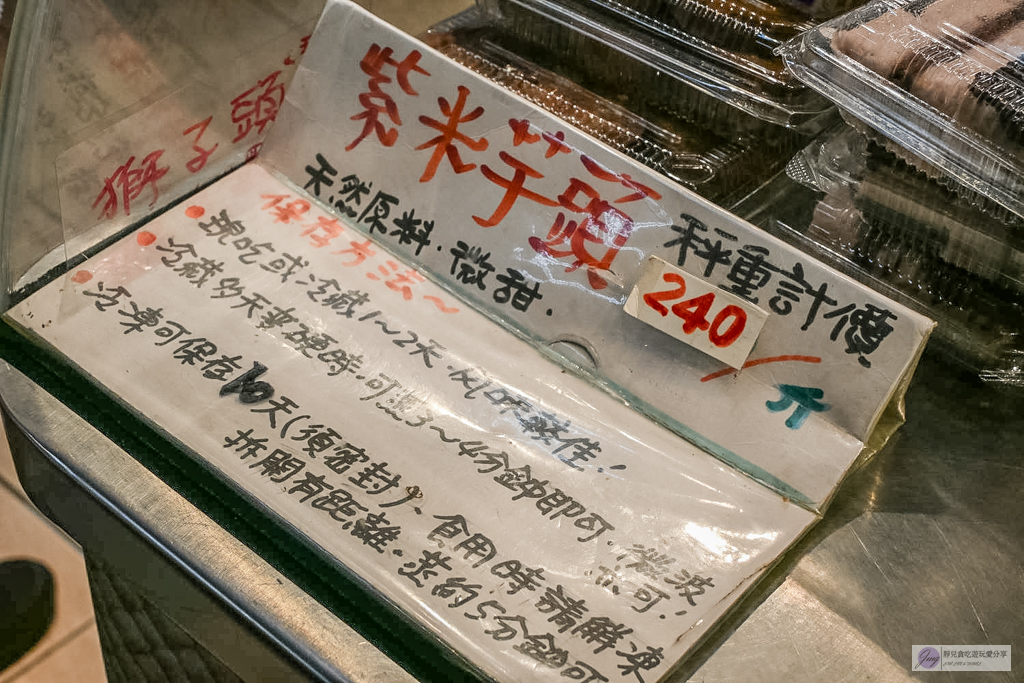 獅子頭
紫米芋頭
天然原料．微甜．
秤重計價
240
/斤
保存方法～
現吃或冷藏1～2天．風味較佳，
冷藏多天要硬時．可蒸3～4分鐘即可．微波
亦可，
冷凍可保存10天(須密封)、食用時請解凍
拆開有距離．蒸約5分鐘可
靜兒貪吃遊玩愛分享